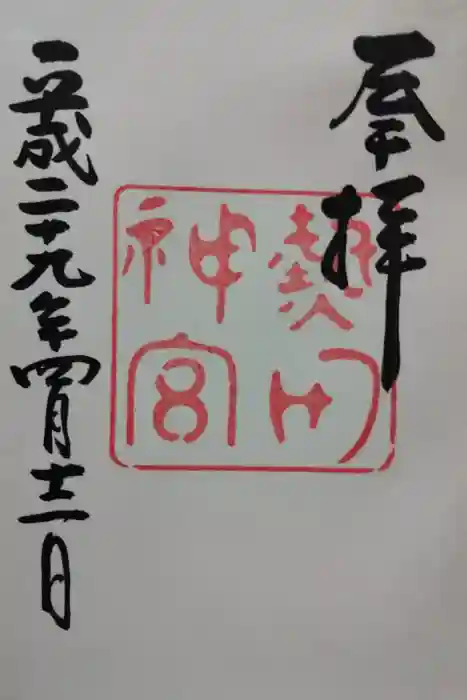 奉拝
熱田
神宮
平成二十九年四月十二日